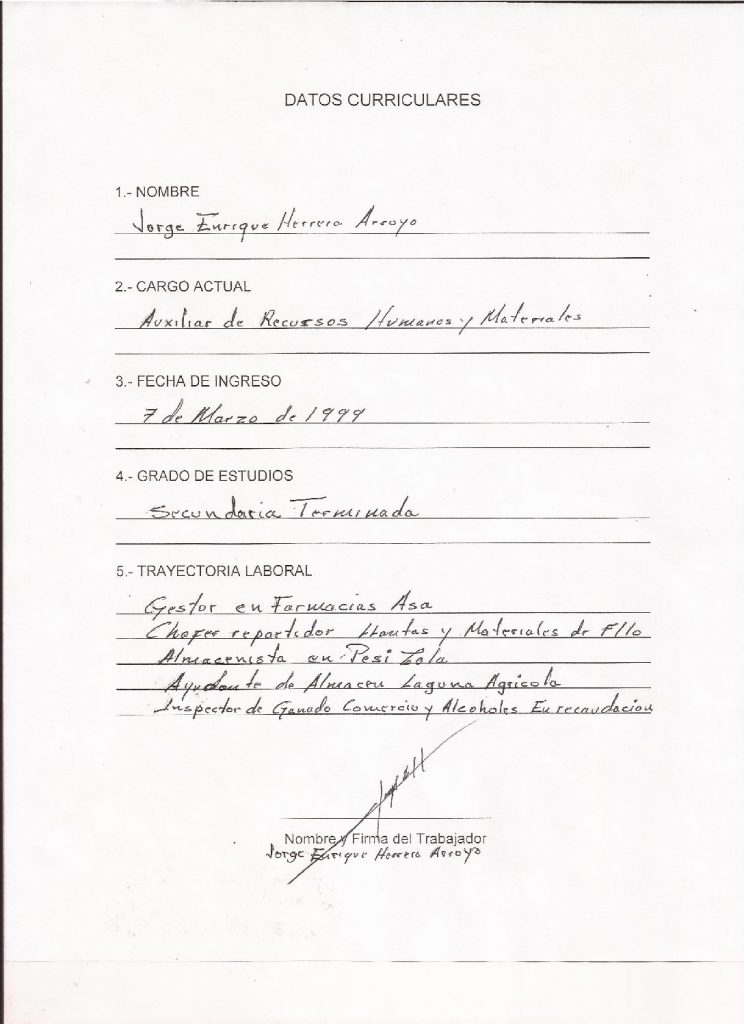 DATOS CURRICULARES
1.- NOMBRE
Jorge Enrique Herrera Arroyo
2.- CARGO ACTUAL
Auxiliar de Recursos Humanos y Materiales
3.- FECHA DE INGRESO
7 de Marzo de 1999
4.- GRADO DE ESTUDIOS
Secundaria Terminada
5.- TRAYECTORIA LABORAL
Gestor en Farmacias Asa
Chofer repartidor Llantas y Materiales de Fllo
Almacenista en Pesi Lala
Ayudante de Almacen Laguna Agricola
Inspector de Ganado Comercio y Alcoholes En recaudacion
Nombre y Firma del Trabajador
Jorge Enrique Herrera Arroyo